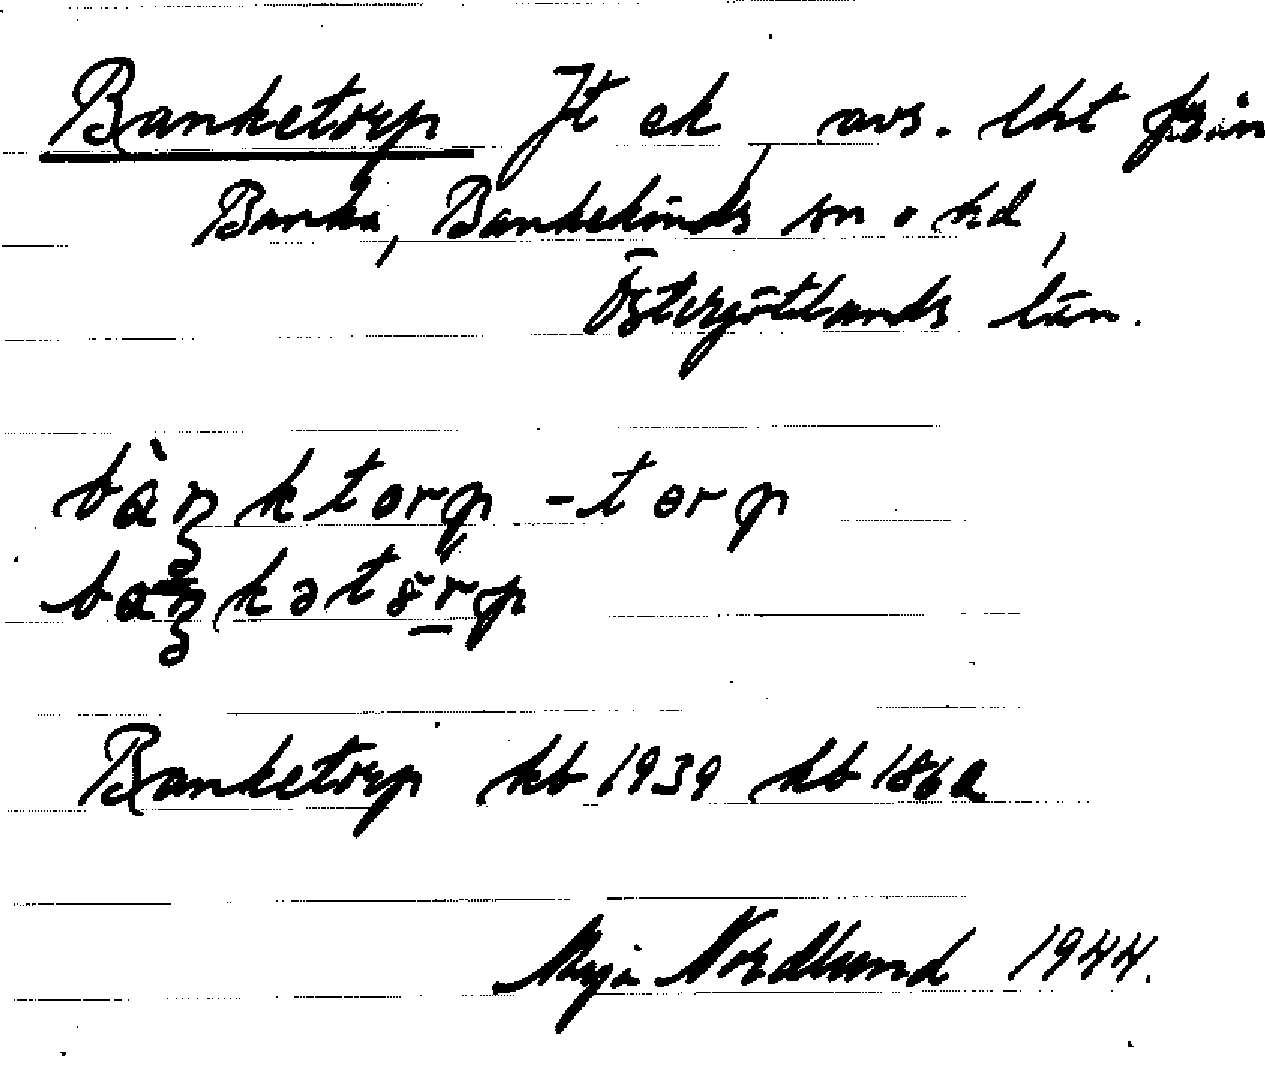 Banketorp Jt ek, avs. lht från
Banka, Bankekinds sn o hd,
Östergötlands län.
bàŋktorp -torp
baŋkətorp
Banketorp kb 1939 hb 186a
Maja Nordlund 1944.